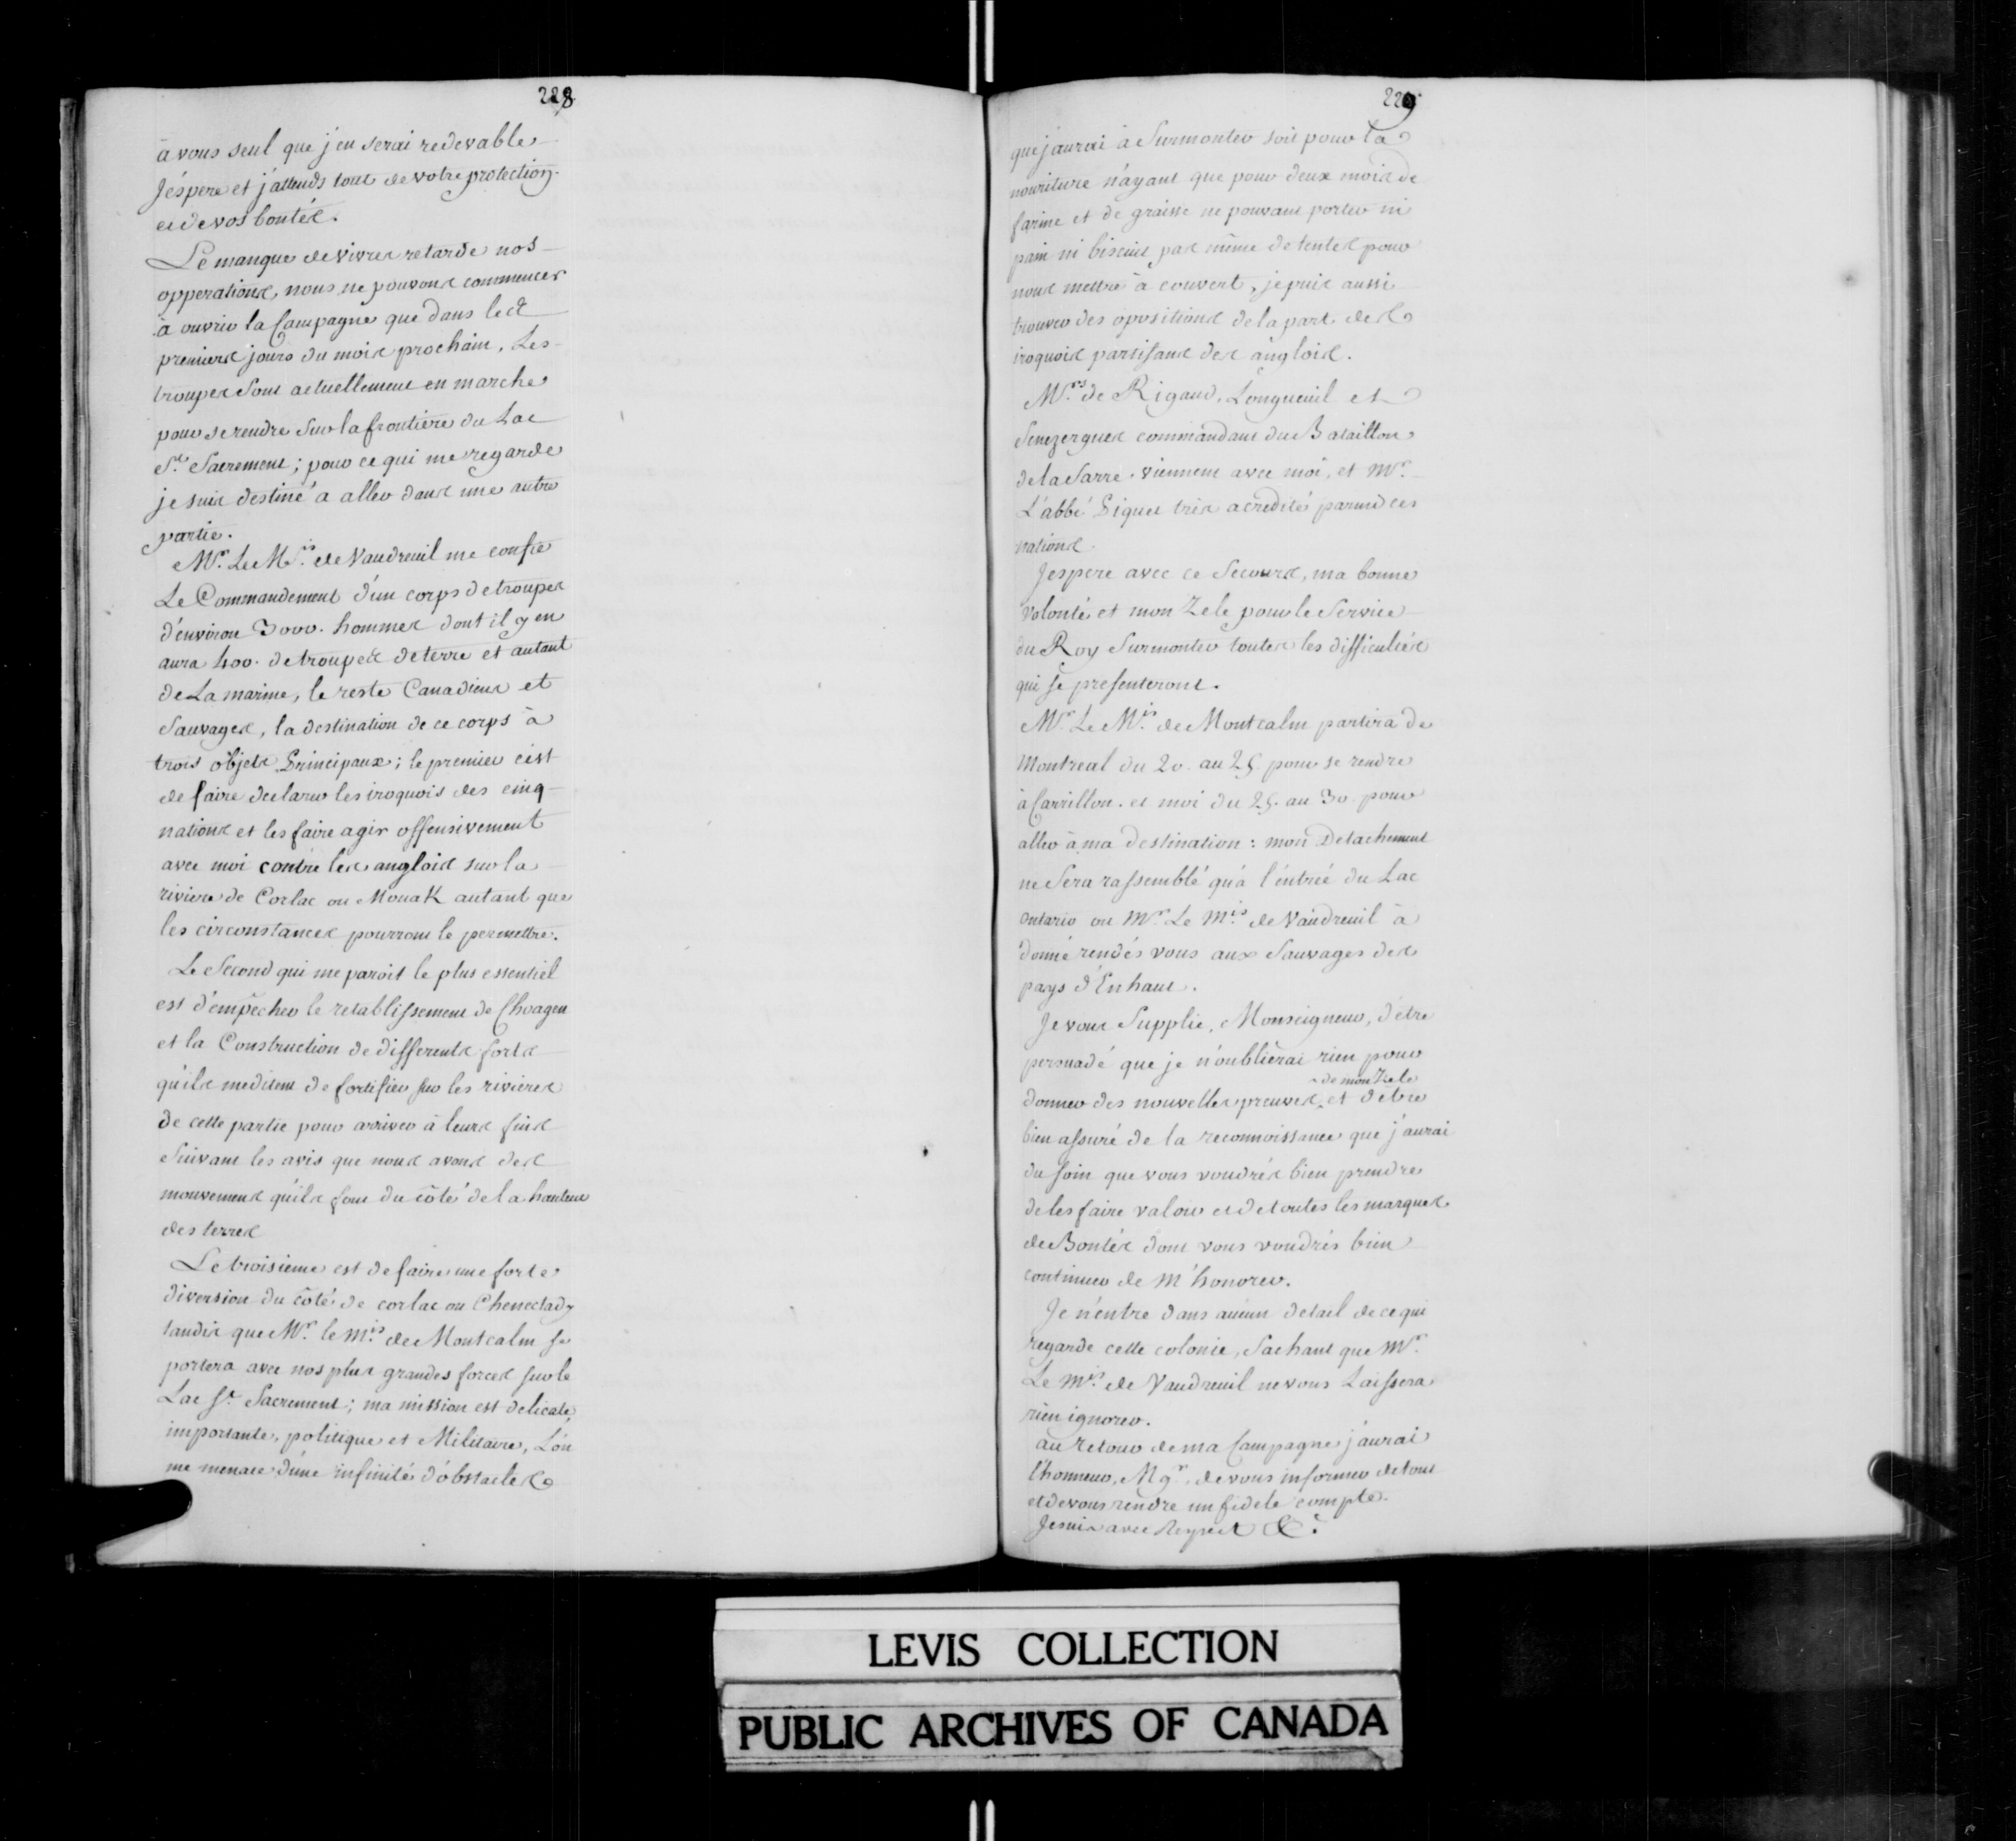 228
à vous seul que j'en serai redevable
Jéspere et j'attends tout de votre protection
et de vos bontés.
Le manque de vivres retarde nos
opperations, nous ne pouvons commencer
à ouvrir la Campagne que dans les
premiers jours du mois prochain, Les
troupes sont actuellement en marche
pour se rendre sur la frontiere du Lac
St. Sacrement; pour ce qui me regarde
je suis destiné a aller dans une autre
partie.
Mr. Le Mis. de Vaudreuil me confie
Le Commandement d'un corps de troupes
d'environ 3000. hommes dont il y en
aura 400. de troupes de terre et autant
de La marine, le reste Canadiens et
Sauvages, la destination de ce corps à
trois objets Principaux; le premier c'est
de faire declarer les iroquois des cinq
nations et les faire agir offensivement
avec moi contre les anglois sur la
riviere de Corlac ou MouaK autant que
les circonstances pourront le permettre.
Le Second qui me paroit le plus essentiel
est d'empêcher le retablissement de Choagen
et la Construction de differents forts
qu'ils meditent de fortifier sur les rivieres
de cette partie pour arriver à leurs fins
Suivant les avis que nous avons des
mouvemens qu'ils font du côté de la hauteur
des terres
Le troisieme est de faire une forte
diversion du côté de corlac ou Chenectady
tandis que Mr. le Mis. de Montcalm se
portera avec nos plus grandes forces sur le
Lac St. Sacrement; ma mission est delicate,
importante, politique et Militaire, L'on
me menace d'une infinité d'obstacles
229
que j'aurai à Surmonter soit pour la
nouriture n'ayant que pour deux mois de
farine et de graisse ne pouvant porter ni
pain ni biscuit pas même de tentes pour
nous mettre à couvert, je puis aussi
trouver des opositions de la part des
iroquois partisans des anglois.
Mrs. de Rigaud, Longueuil et
Senezergues commandant du Bataillon
de la Sarre. viennent avec moi, et Mr.
L'abbé Piquet très acredité parmi ces
nations.
Jespere avec ce Secours, ma bonne
volonté et mon Zele pour le Service
du Roy Surmonter toutes les difficultés
qui se presenteront.
Mr. Le Mis. de Montcalm partira de
Montreal du 20. au 25. pour se rendre
à Carrillon. et moi du 25. au 30. pour
aller à ma destination: mon Detachement
ne Sera rassemblé qu'à l'entrée du Lac
Ontario ou Mr. Le Mis. de Vaudreuil à
donné rendés vous aux Sauvages des
pays d'Enhaut.
Je vous Supplie, Monseigneur, d'être
persuadé que je n'oublierai rien pour
de mon Zele
donner des nouvelles preuves, et d'être
bien assuré de la reconnoissance que j'aurai
du soin que vous voudrés bien prendre
de les faire valoir et de toutes les marques
de Bontés dont vous voudrés bien
continuer de m'honorer.
Je n'entre dans aucun detail de ce qui
regarde cette colonie, Sachant que Mr.
Le Mis. de Vaudreuil ne vous Laissera
rien ignorer.
au retour de ma Campagne j'aurai
l'honneur, Mgr. de vous informer de tout
et de vous rendre un fidele compte.
Je suis avec Respect &c.
LEVIS COLLECTION
PUBLIC ARCHIVES OF CANADA